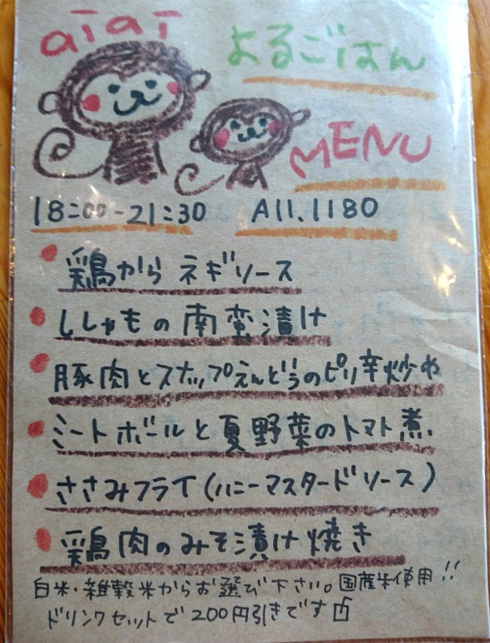 aiai
よるごはん
MENU
18:00-21:30 All.1180
鶏から ネギソース
ししゃもの南蛮漬け
豚肉とスナップえんどうのピリ辛炒め
ミートボールと夏野菜のトマト煮
ささみフライ(ハニーマスタードソース)
鶏肉のみそ漬け焼き
白米・雑穀米からお選び下さい。国産米使用!!
ドリンクセットで200円引きです